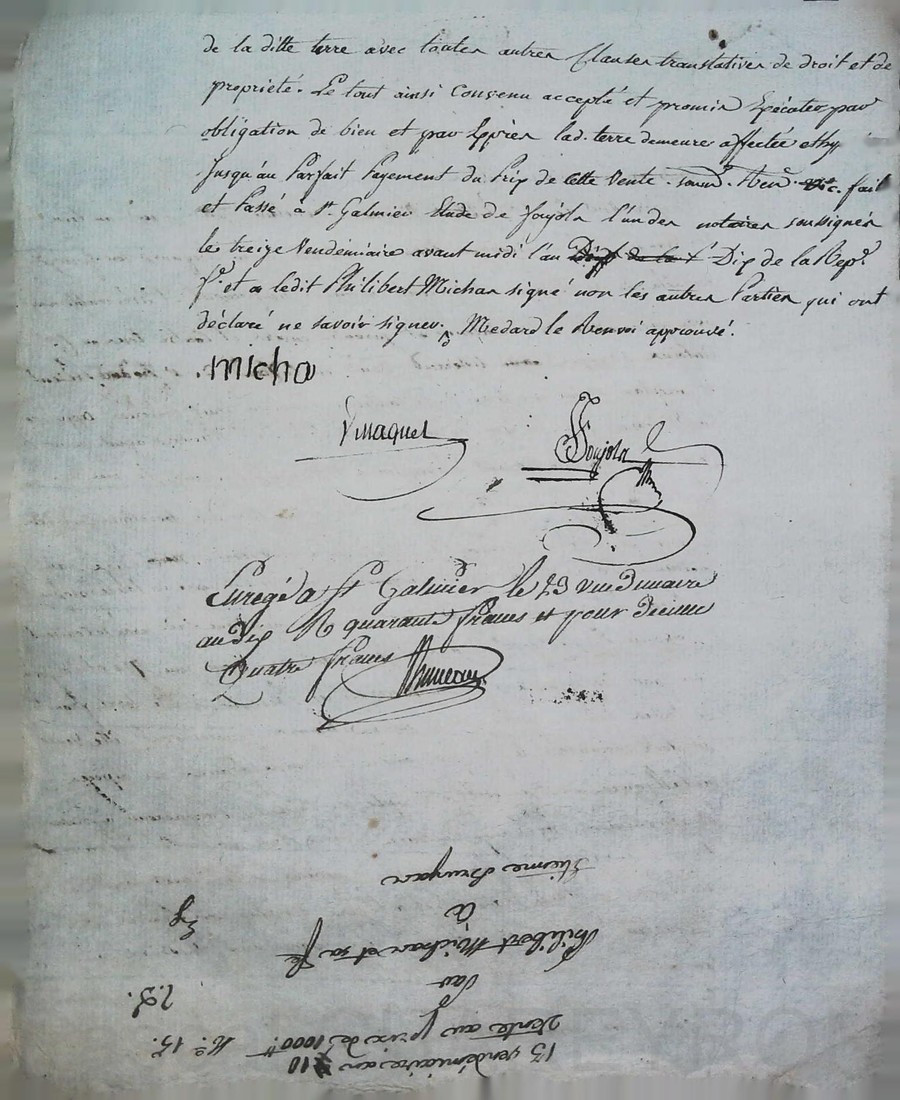 de la ditte terre avec toutes autres Clauses translatives de droit et de
propriété. Le tout ainsi Convenu accepté et promis Exécuter par
obligation de bien et par Exprès lad. terre demeurer affectée et hy
jusqu'au Parfait Payement du Prix de Cette Vente. fait
et Passé à St. Galmier Etude de foujols l'un des notaires soussignés
le treize Vendémiaire avant midi l'an Dix de la Repe.
f.se et a ledit Philibert Michas signé non les autres Parties qui ont
déclaré ne savoir signer. Medard le Renvoi approuvé.
micha
Vinagnet
foujols
Enregé a St Galmier le 23 vendemiaire
an dix R quarante francs et pour decime
Quatre francs
13 vendémiaire an 10
Vente au prix de 1000tt No. 15.
Par
Philibert Michas et sa fe
A
Etienne Bruyas